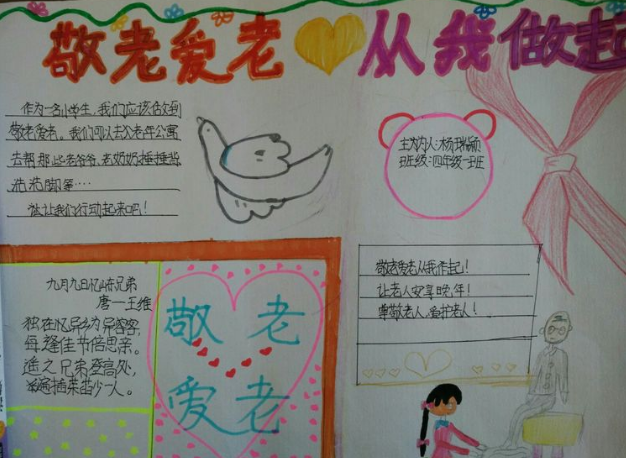 敬老爱老 从我做起
作为一名小学生,我们应该做到
敬老爱老。我们可以去敬老年公寓
去帮那些老爷爷、老奶奶捶捶背
洗洗脚等····
让我们行动起来吧!
主办人:杨瑞颖
班级:四年级一班
敬老爱老从我作起!
让老人安享晚年!
尊敬老人,爱护老人!
九月九日忆山东兄弟
唐一王维
独在忆异乡为异客
每逢佳节倍思亲。
遥之兄弟登高处,
插茱苗少一人。
敬 老
爱 老